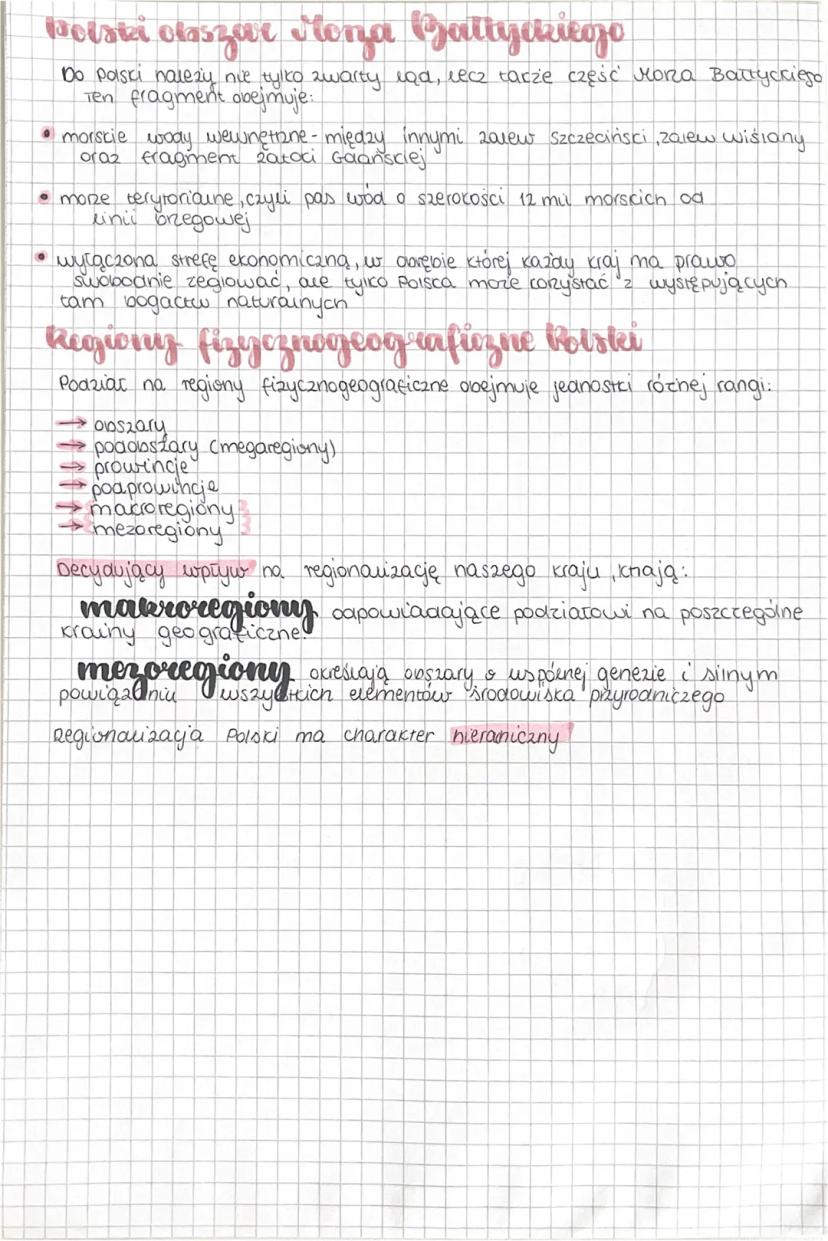 Polski obszar Morza Bałtyckiego
Do Polski należy nie tylko zwarty ląd, lecz także część Morza Bałtyckiego
Ten fragment obejmuje:
• morskie wody wewnętrzne - między innymi zalew Szczeciński, zalew wiślany
oraz fragment zatoki Gdańskiej
• morze terytorialne, czyli pas wód o szerokości 12 mil morskich od
linii brzegowej
• wyłączoną strefę ekonomiczną, w obrębie której każdy kraj ma prawo
swobodnie żeglować, ale tylko Polska może korzystać z występujących
tam bogactw naturalnych
Regiony fizycznogeograficzne Polski
Podział na regiony fizycznogeograficzne obejmuje jednostki różnej rangi:
→ obszary
→ podobszary (megaregiony)
→ prowincje
→ podprowincje
→ makroregiony
→ mezoregiony
Decydujący wpływ na regionalizację naszego kraju, mają:
makroregiony odpowiadające podziałowi na poszczególne
krainy geograficzne.
mezoregiony określają obszary o wspólnej genezie i silnym
powiązaniu wszystkich elementów środowiska przyrodniczego
Regionalizacja Polski ma charakter hieraniczny